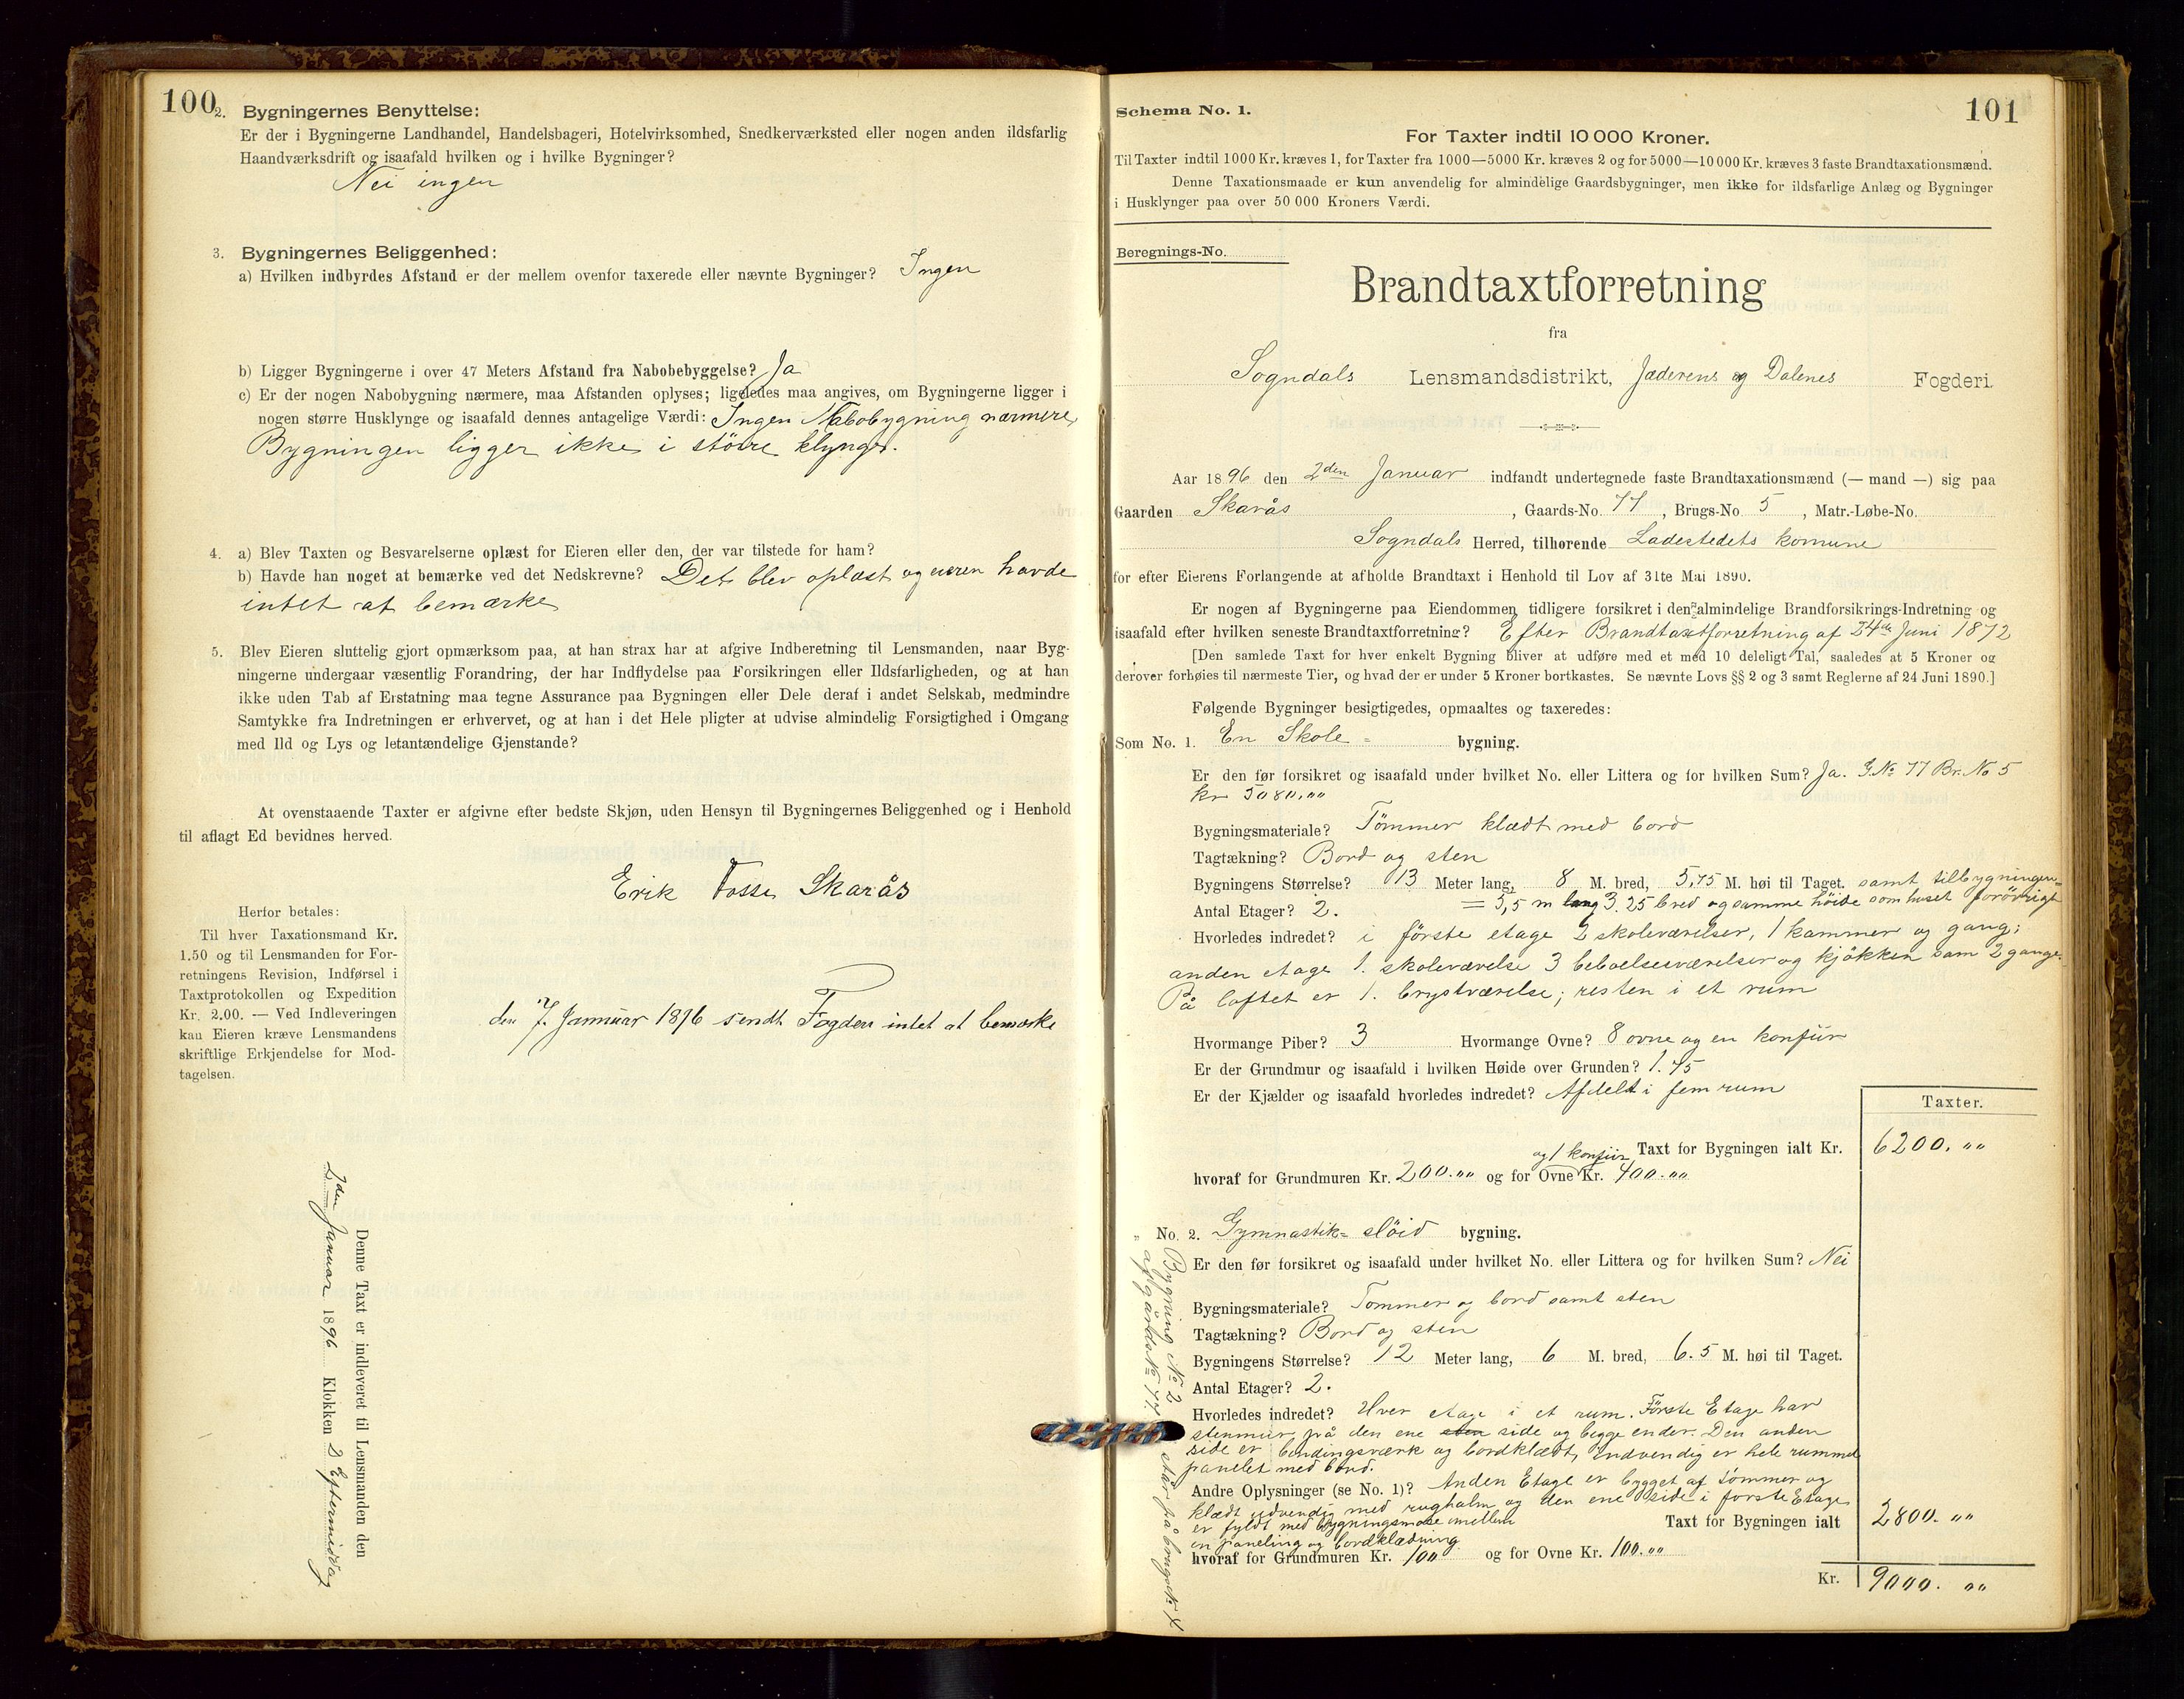 100
2. Bygningernes Benyttelse:
Er der i Bygningerne Landhandel, Handelsbageri, Hotelvirksomhed, Snedkerværksted eller nogen anden ildsfarlig
Haandværksdrift og isaafald hvilken og i hvilke Bygninger?
Nei ingen
3. Bygningernes Beliggenhed:
a) Hvilken indbyrdes Afstand er der mellem ovenfor taxerede eller nævnte Bygninger? Ingen
b) Ligger Bygningerne i over 47 Meters Afstand fra Nabobebyggelse? Ja
c) Er der nogen Nabobygning nærmere, maa Afstanden oplyses; ligeledes maa angives, om Bygningerne ligger i
nogen større Husklynge og isaafald dennes antagelige Værdi: Ingen Nabobygning nærmere,
Bygningen ligger ikke i större klynge.
4. a) Blev Taxten og Besvarelserne oplæst for Eieren eller den, der var tilstede for ham?
b) Havde han noget at bemærke ved det Nedskrevne? Det blev oplæst og eieren havde
intet at bemærke
5. Blev Eieren sluttelig gjort opmærksom paa, at han strax har at afgive Indberetning til Lensmanden, naar Byg-
ningerne undergaar væsentlig Forandring, der har Indflydelse paa Forsikringen eller Ildsfarligheden, og at han
ikke uden Tab af Erstatning maa tegne Assurance paa Bygningen eller Dele deraf i andet Selskab, medmindre
Samtykke fra Indretningen er erhvervet, og at han i det Hele pligter at udvise almindelig Forsigtighed i Omgang
med Ild og Lys og letantændelige Gjenstande?
At ovenstaaende Taxter er afgivne efter bedste Skjøn, uden Hensyn til Bygningernes Beliggenhed og i Henhold
til aflagt Ed bevidnes herved.
Erik Fosse Skarås
Herfor betales:
Til hver Taxationsmand Kr.
1.50 og til Lensmanden for For-
retningens Revision, Indførsel i
Taxtprotokollen og Expedition
Kr. 2.00. — Ved Indleveringen
kan Eieren kræve Lensmandens
skriftlige Erkjendelse for Mod-
tagelsen.
den 7. Januar 1896 sendt Fogden intet at bemærke
Denne Taxt er indleveret til Lensmanden den
2den Januar 1896 Klokken 2 Eftermiddag
101
Schema No. 1.
For Taxter indtil 10 000 Kroner.
Til Taxter indtil 1000 Kr. kræves 1, for Taxter fra 1000—5000 Kr. kræves 2 og for 5000—10 000 Kr. kræves 3 faste Brandtaxationsmænd.
Denne Taxationsmaade er kun anvendelig for almindelige Gaardsbygninger, men ikke for ildsfarlige Anlæg og Bygninger
i Husklynger paa over 50 000 Kroners Værdi.
Beregnings-No.
Brandtaxtforretning
fra
Sogndals Lensmandsdistrikt, Jæderens og Dalenes Fogderi.
Aar 1896 den 2den Januar indfandt undertegnede faste Brandtaxationsmænd (— mand —) sig paa
Gaarden Skarås, Gaards-No. 77, Brugs-No. 5, Matr.-Løbe-No.
Sogndals Herred, tilhørende Ladestedets komune
for efter Eierens Forlangende at afholde Brandtaxt i Henhold til Lov af 31te Mai 1890.
Er nogen af Bygningerne paa Eiendommen tidligere forsikret i den almindelige Brandforsikrings-Indretning og
isaafald efter hvilken seneste Brandtaxtforretning? Efter Brandtaxtforretning af 24de Juni 1872
[Den samlede Taxt for hver enkelt Bygning bliver at udføre med et med 10 deleligt Tal, saaledes at 5 Kroner og
derover forhøies til nærmeste Tier, og hvad der er under 5 Kroner bortkastes. Se nævnte Lovs §§ 2 og 3 samt Reglerne af 24 Juni 1890.]
Følgende Bygninger besigtigedes, opmaaltes og taxeredes:
Som No. 1. En Skole= bygning.
Er den før forsikret og isaafald under hvilket No. eller Littera og for hvilken Sum? Ja. G.No 77 Br. No 5
kr 5080,00
Bygningsmateriale? Tömmer klædt med bord
Tagtækning? Bord og sten
Bygningens Størrelse? 13 Meter lang, 8 M. bred, 5,75 M. høi til Taget. samt tilbygningen=
Antal Etager? 2. = 5,5 m lang 3.25 bred og samme höide som huset forövrigt
Hvorledes indredet? i förste etage 2 skoleværelser, 1 kammer og gang;
anden etage 1. skoleværelse 3 beboelsesværelser og kjökken sam 2 gange.
På loftet er 1. brystværelse; resten i et rum
Hvormange Piber? 3 Hvormange Ovne? 8 ovne og en konfür
Er der Grundmur og isaafald i hvilken Høide over Grunden? 1.75
Er der Kjælder og isaafald hvorledes indredet? Afdelt i fem rum
Taxter.
Taxt for Bygningen ialt Kr. 6200.00
og 1 konfür
hvoraf for Grundmuren Kr. 200.00 og for Ovne Kr. 400.00
" No. 2. Gymnastik= slöid bygning.
Er den før forsikret og isaafald under hvilket No. eller Littera og for hvilken Sum? Nei
Bygningsmateriale? Tømmer og bord samt sten
Tagtækning? Bord og sten
Bygningens Størrelse? 12 Meter lang, 6 M. bred, 6.5 M. høi til Taget.
Antal Etager? 2.
Hvorledes indredet? Hver etage i et rum. Förste Etage har
stenmur på den ene side og begge ender. Den anden
side er bindingsværk og bordklædt, indvendig er hele rummet
panelet med bord.
Andre Oplysninger (se No. 1)? Anden Etage er bygget af tömmer og
klædt udvendig med og den ene side i förste Etage
er fyldt med bygningsmose imellem
en paneling og bordklædning.
Taxt for Bygningen ialt 2800.00
hvoraf for Grundmuren Kr. 100 og for Ovne Kr. 100.00
Kr. 9000.00
Bygning No 2 står på brugsno
af gårdsno 77.